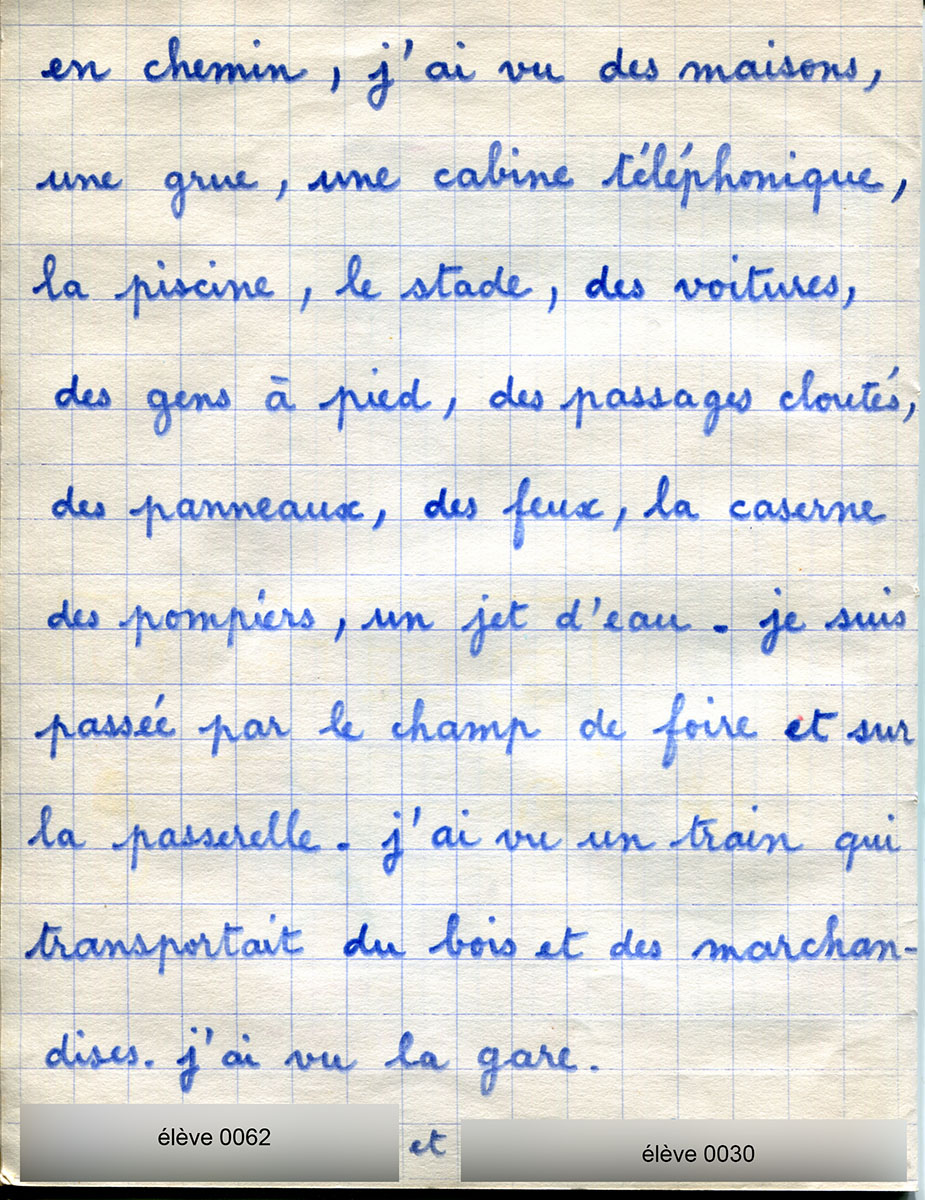 en chemin, j'ai vu des maisons,
une grue, une cabine téléphonique,
la piscine, le stade, des voitures,
des gens à pied, des passages cloutés,
des panneaux, des feux, la caserne
des pompiers, un jet d'eau. je suis
passée par le champ de foire et sur
la passerelle. j'ai vu un train qui
transportait du bois et des marchan-
dises. j'ai vu la gare.
élève 0062 et élève 0030